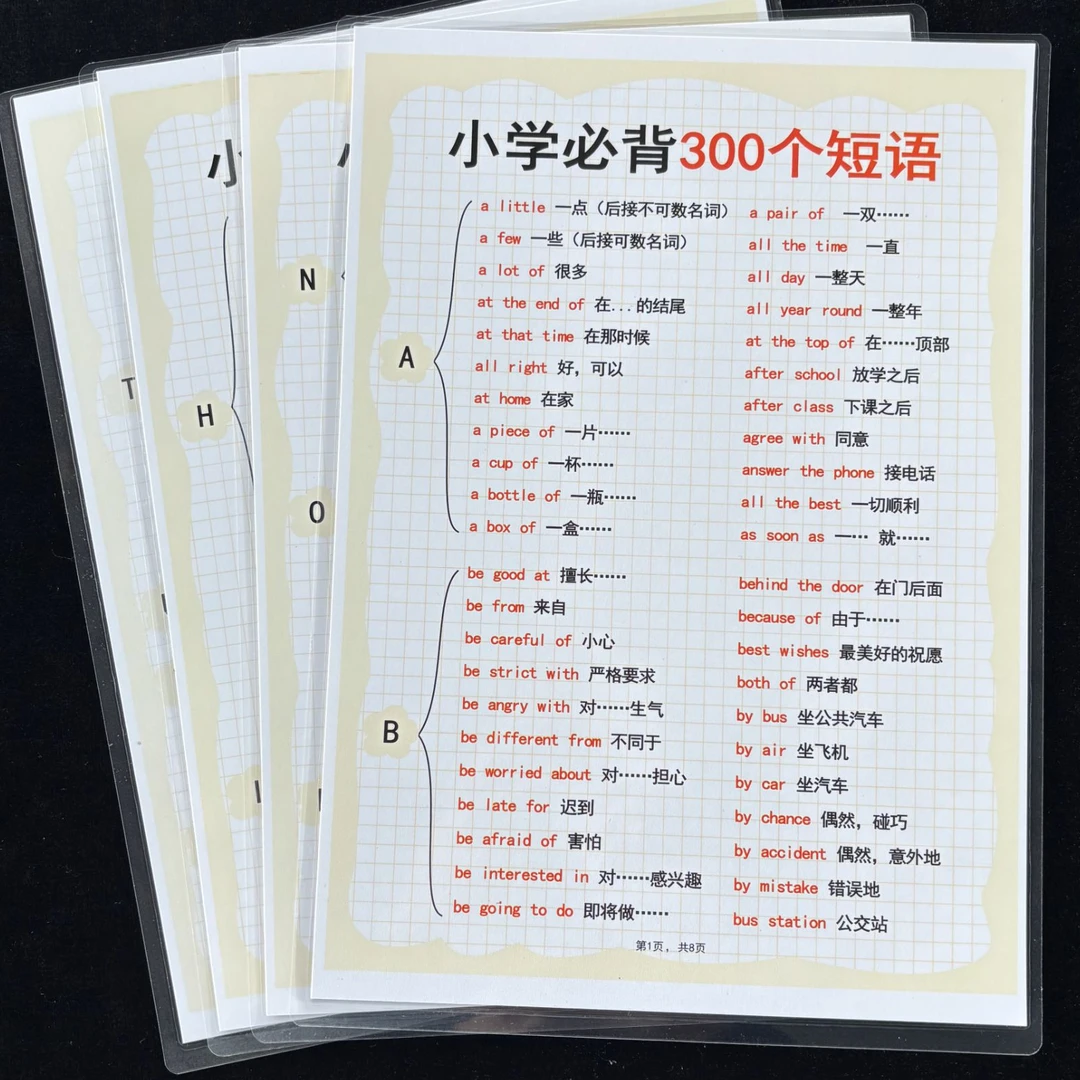 小学必背300个短语
A
a little 一点（后接不可数名词）
a few 一些（后接可数名词）
a lot of 很多
at the end of 在...的结尾
at that time 在那时候
all right 好，可以
at home 在家
a piece of 一片……
a cup of 一杯……
a bottle of 一瓶……
a box of 一盒……
a pair of 一双……
all the time 一直
all day 一整天
all year round 一整年
at the top of 在……顶部
after school 放学之后
after class 下课之后
agree with 同意
answer the phone 接电话
all the best 一切顺利
as soon as 一… 就……
B
be good at 擅长……
be from 来自
be careful of 小心
be strict with 严格要求
be angry with 对……生气
be different from 不同于
be worried about 对……担心
be late for 迟到
be afraid of 害怕
be interested in 对……感兴趣
be going to do 即将做……
behind the door 在门后面
because of 由于……
best wishes 最美好的祝愿
both of 两者都
by bus 坐公共汽车
by air 坐飞机
by car 坐汽车
by chance 偶然，碰巧
by accident 偶然，意外地
by mistake 错误地
bus station 公交站
第1页，共8页
N
O
小
H
T